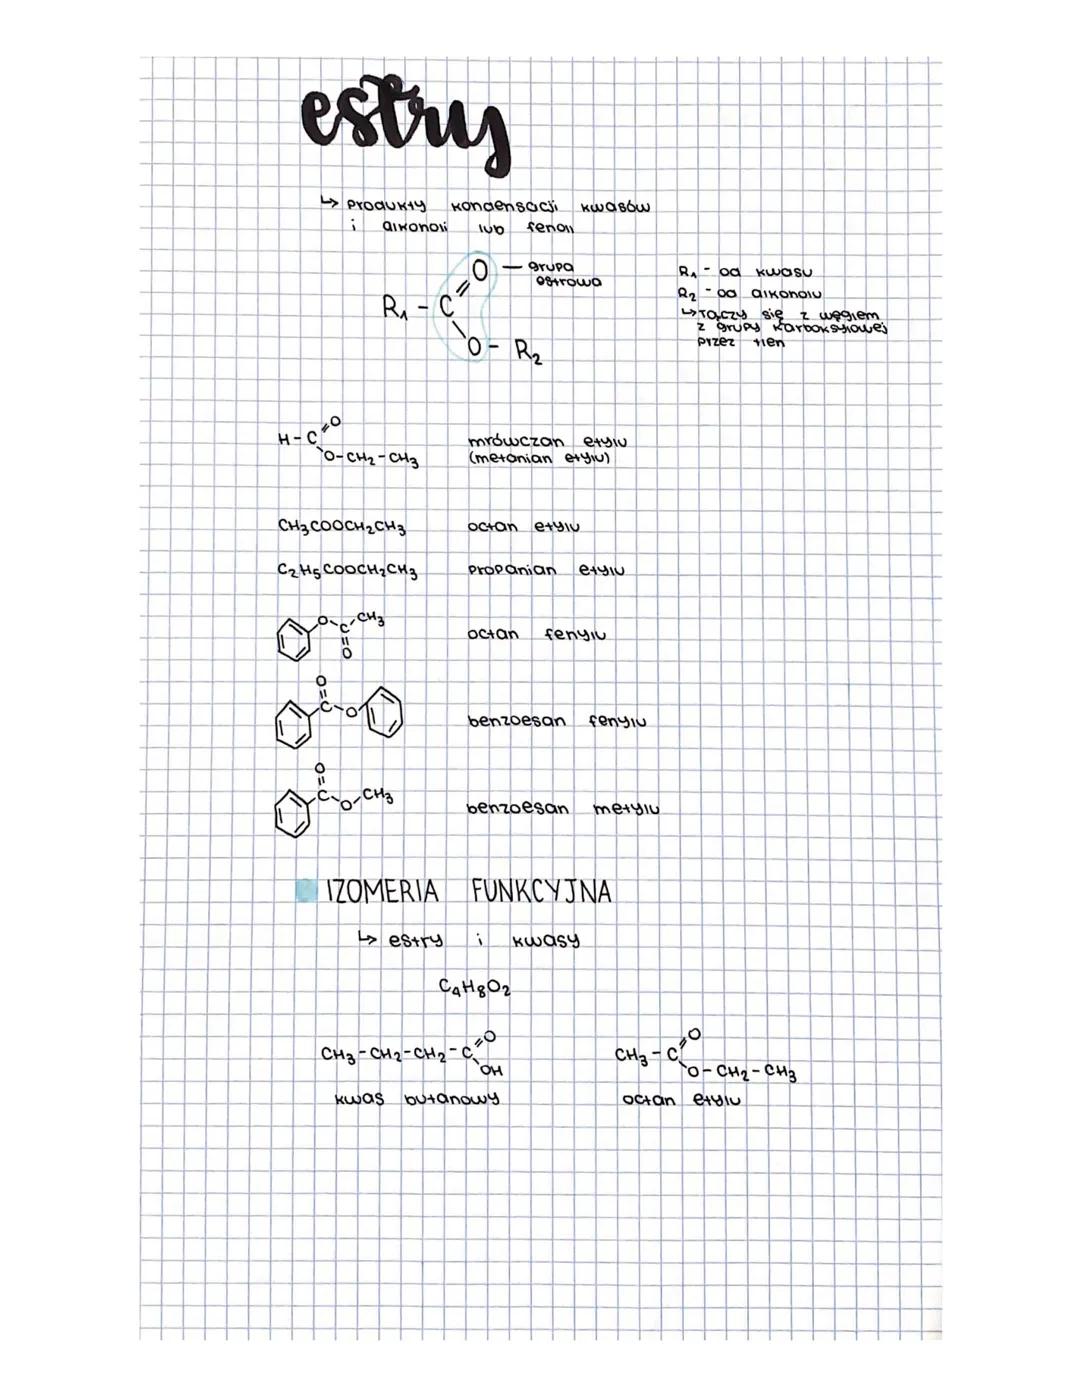 estry
↳ produkty kondensacji kwasów
i alkoholi lub fenoli
O — grupa
estrowa
R₁ - C
O - R₂
R₁ - od kwasu
R₂ - od alkoholu
↳ łączy się z węglem
z grupy karboksylowej
przez tlen
H - C
O
O-CH₂-CH₃
mrówczan etylu
(metanian etylu)
CH₃COOCH₂CH₃ octan etylu
C₂H₅COOCH₂CH₃ propanian etylu
O C CH₃
O
octan fenylu
O
C O
benzoesan fenylu
O
C O CH₃
benzoesan metylu
IZOMERIA FUNKCYJNA
↳ estry i kwasy
C₄H₈O₂
CH₃-CH₂-CH₂-C
O
OH
kwas butanowy
CH₃-C
O
O-CH₂-CH₃
octan etylu